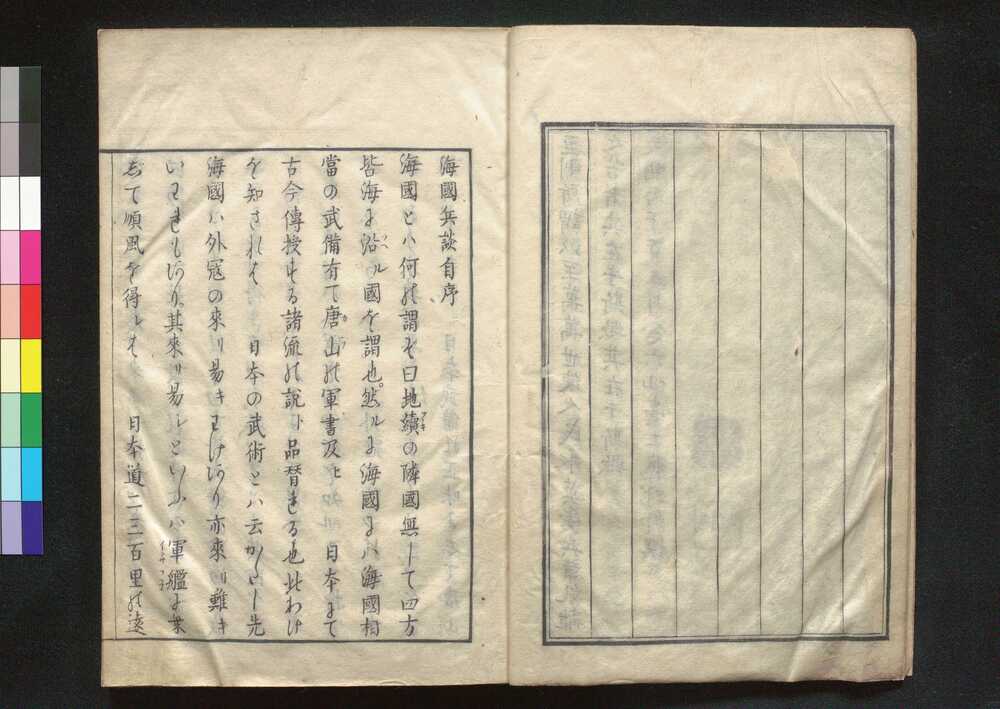 海國兵談自序
海國とハ何の謂そ曰地續の隣國無して四方
皆海に沿ル國を謂也然ルに海國にハ海國相
當の武備有て唐山の軍書及ヒ日本にて
古今傳授する諸流の説ト品替れる也此わけ
を知されは日本の武術とハ云かたし先
海國ハ外寇の來リ易キわけあり亦來リ難キ
いわれもあり其來リ易シといふハ軍艦に乗
して順風を得レは日本道二三百里の遠